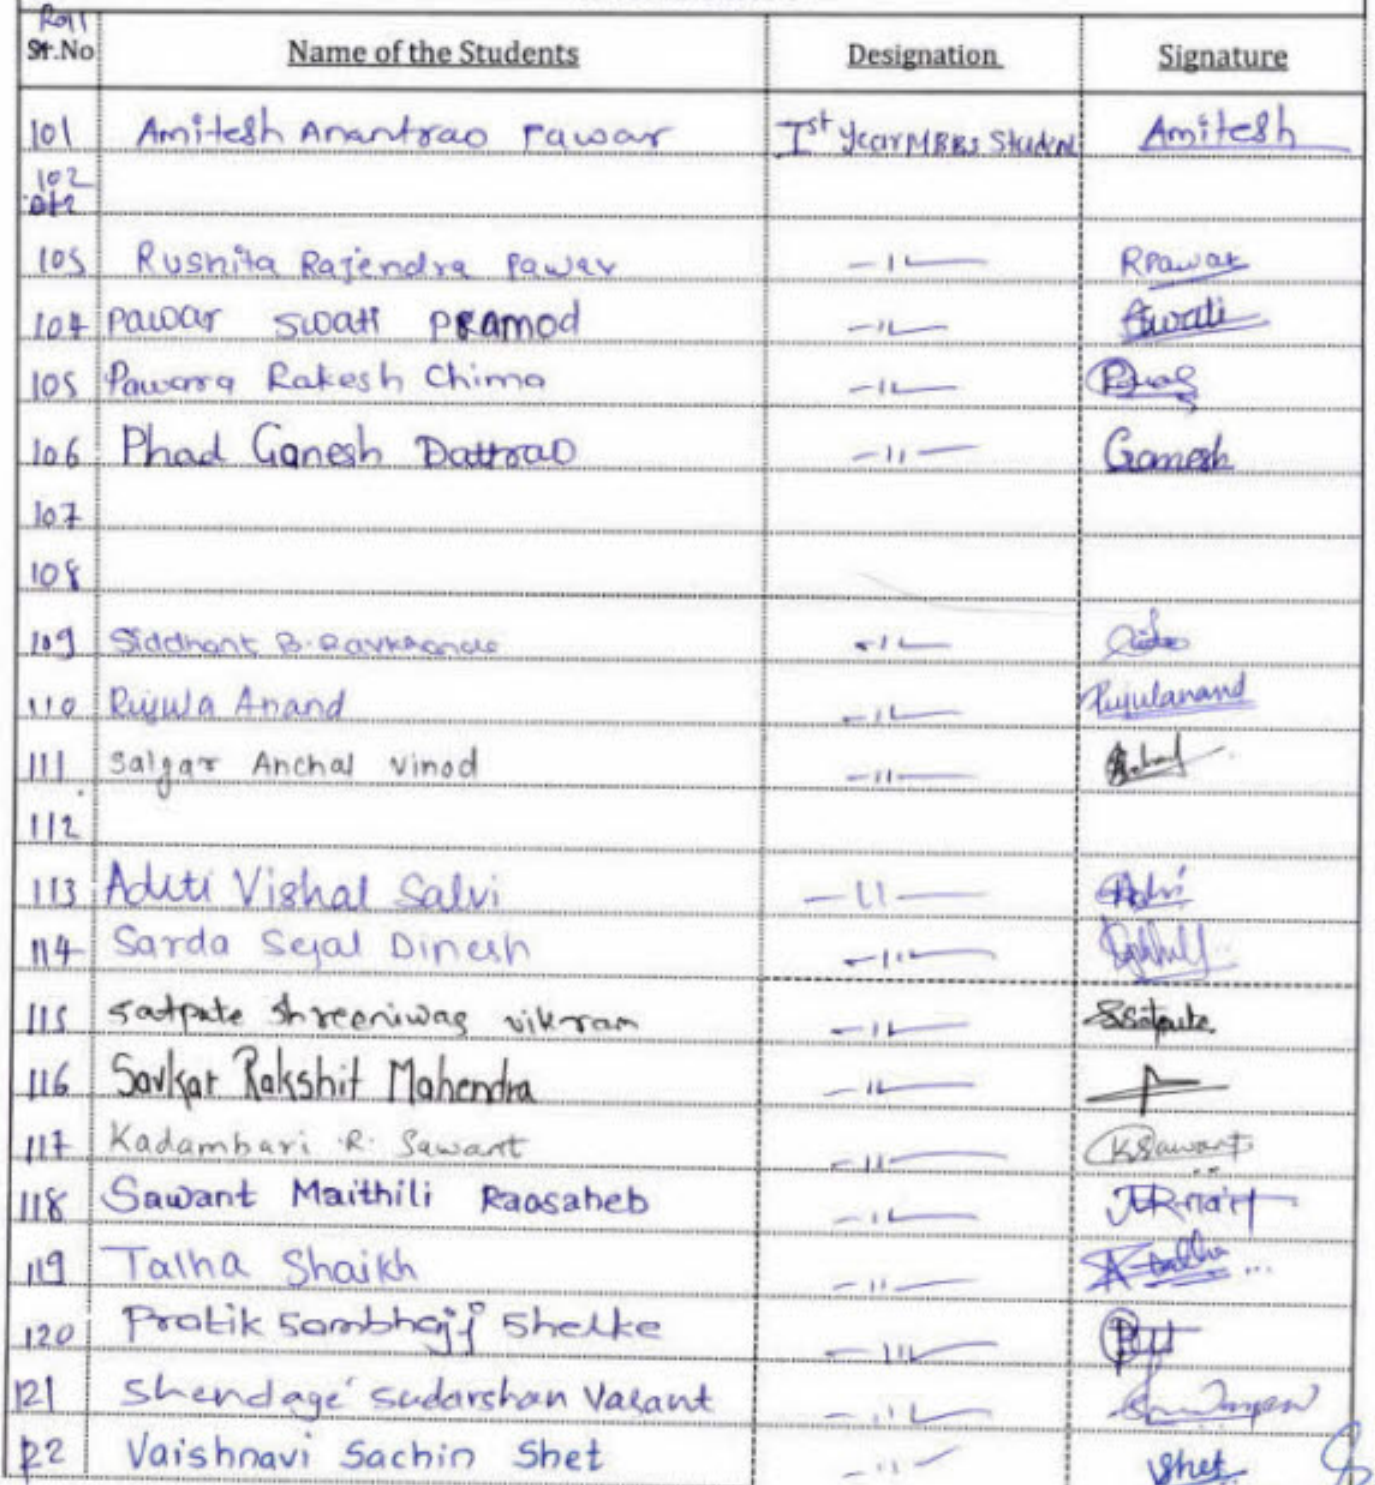 Roll
Sr.No Name of the Students Designation Signature
101 Amitesh Anantrao Pawar Ist Year MBBS Student Amitesh
102
103 Rushita Rajendra Pawar -11- RPawar
104 Pawar Swati Pramod -11- Swati
105 Pawara Rakesh Chima -11-
106 Phad Ganesh Dattrao -11- Ganesh
107
108
109 Siddhant B. -11-
110 Rujula Anand -11- Rujulanand
111 Salgar Anchal Vinod -11-
112
113 Aditi Vishal Salvi -11-
114 Sarda Sejal Dinesh -11-
115 Satpute Shreeniwas Vikram -11- SSatpute
116 Savkar Rakshit Mahendra -11-
117 Kadambari R. Sawant -11- KSawant
118 Sawant Maithili Raosaheb -11-
119 Talha Shaikh -11- Talha
120 Pratik Sambhaji Shelke -11-
121 Shendage Sudarshan Vasant -11-
122 Vaishnavi Sachin Shet -11- Shet